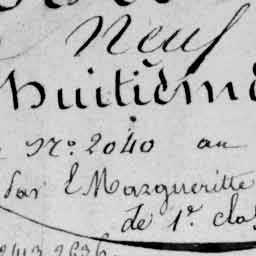 Neuf
huitième
N.º 2040 au
par E Margueritte
de 1.re clas
2413 2636